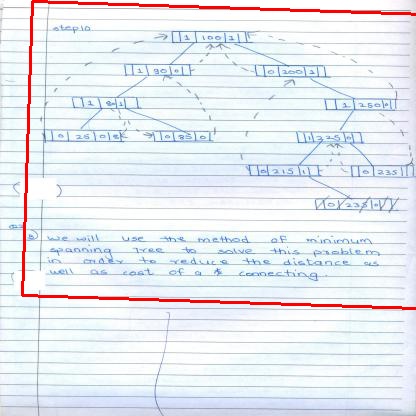 step 10
1 100 1
1 90 0
0 200 1
1 8 1
1 250 0
0 25 0
0 85 0
1 225 0
0 215 1
0 235
0 235 0
we will use the method of minimum
spanning Tree to solve this problem
in order to reduce the distance as
well as cost of a $ connecting.